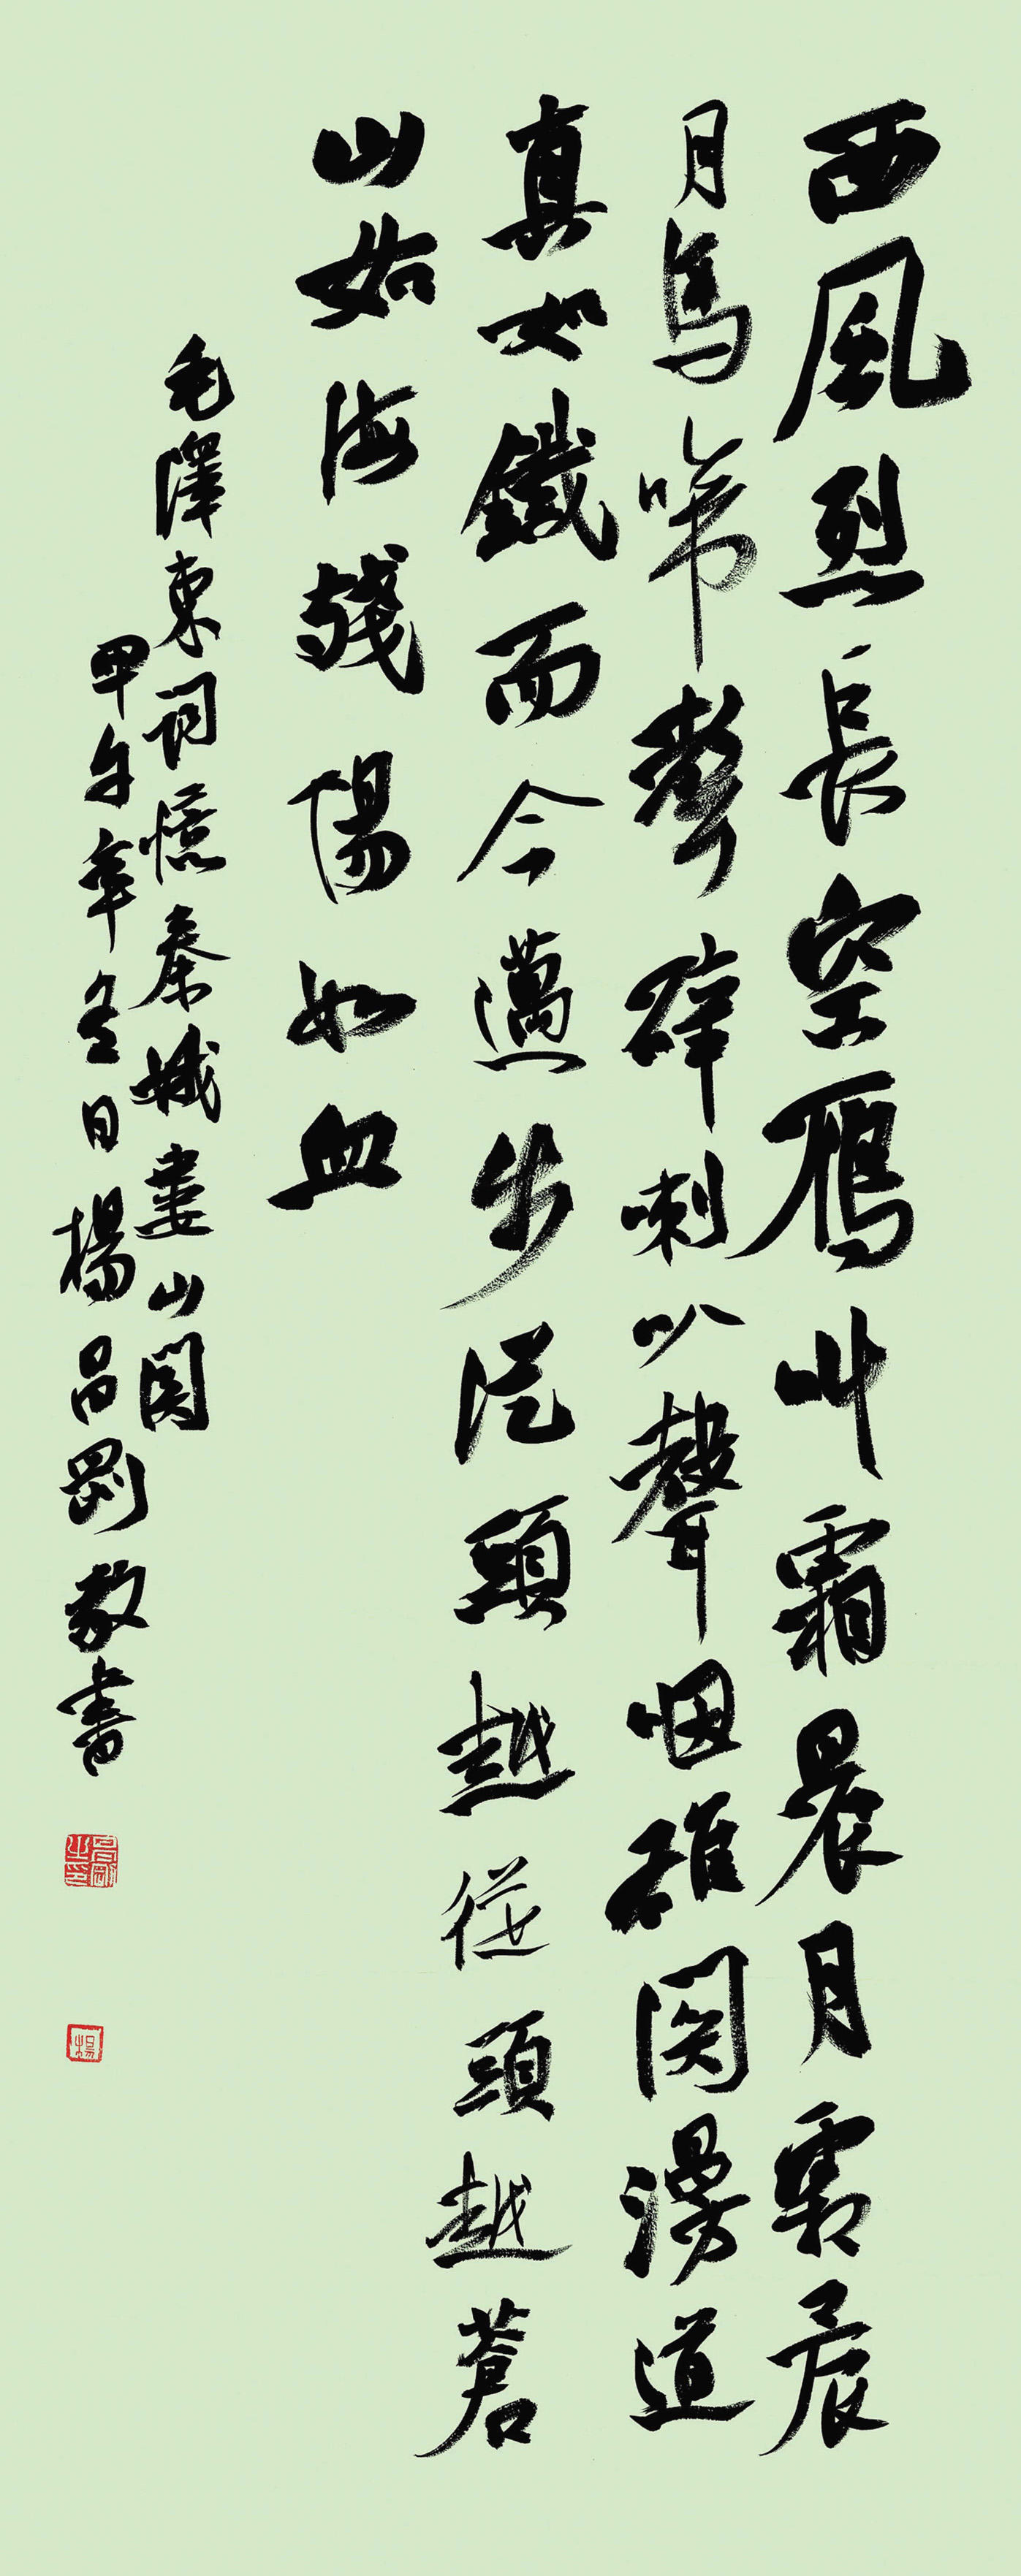 西風烈長空雁叫霜晨月霜晨
月馬啼聲碎喇叭聲咽雄関漫道
真如鐵而今邁步從頭越從頭越蒼
山如海殘陽如血
毛澤東詞憶秦娥婁山関
甲午年冬日楊昌剛敬書
昌剛之印
楊